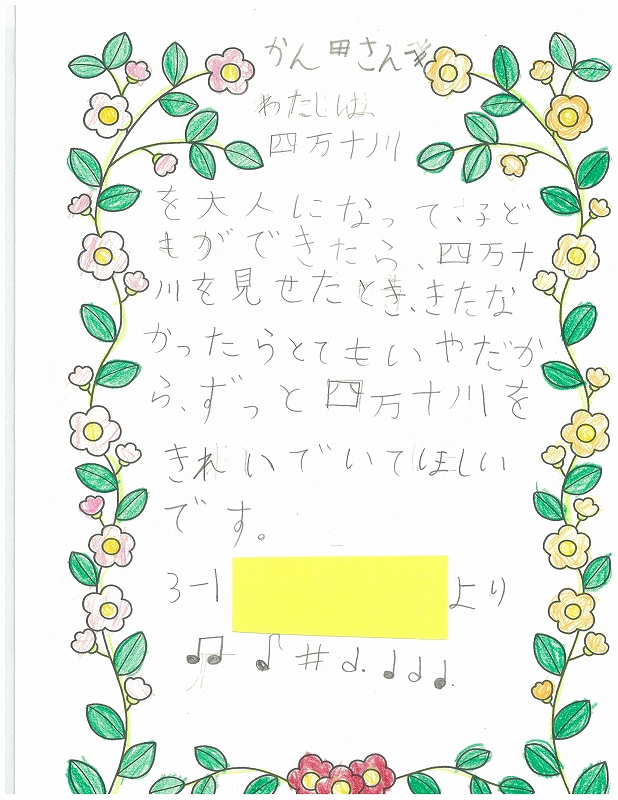 かん田さんへ
わたしは、
四万十川
を大人になって、子ど
もができたら、四万十
川を見せたとき、きたな
かったらとてもいやだか
ら、ずっと四万十川を
きれいでいてほしい
です。
3-1 より